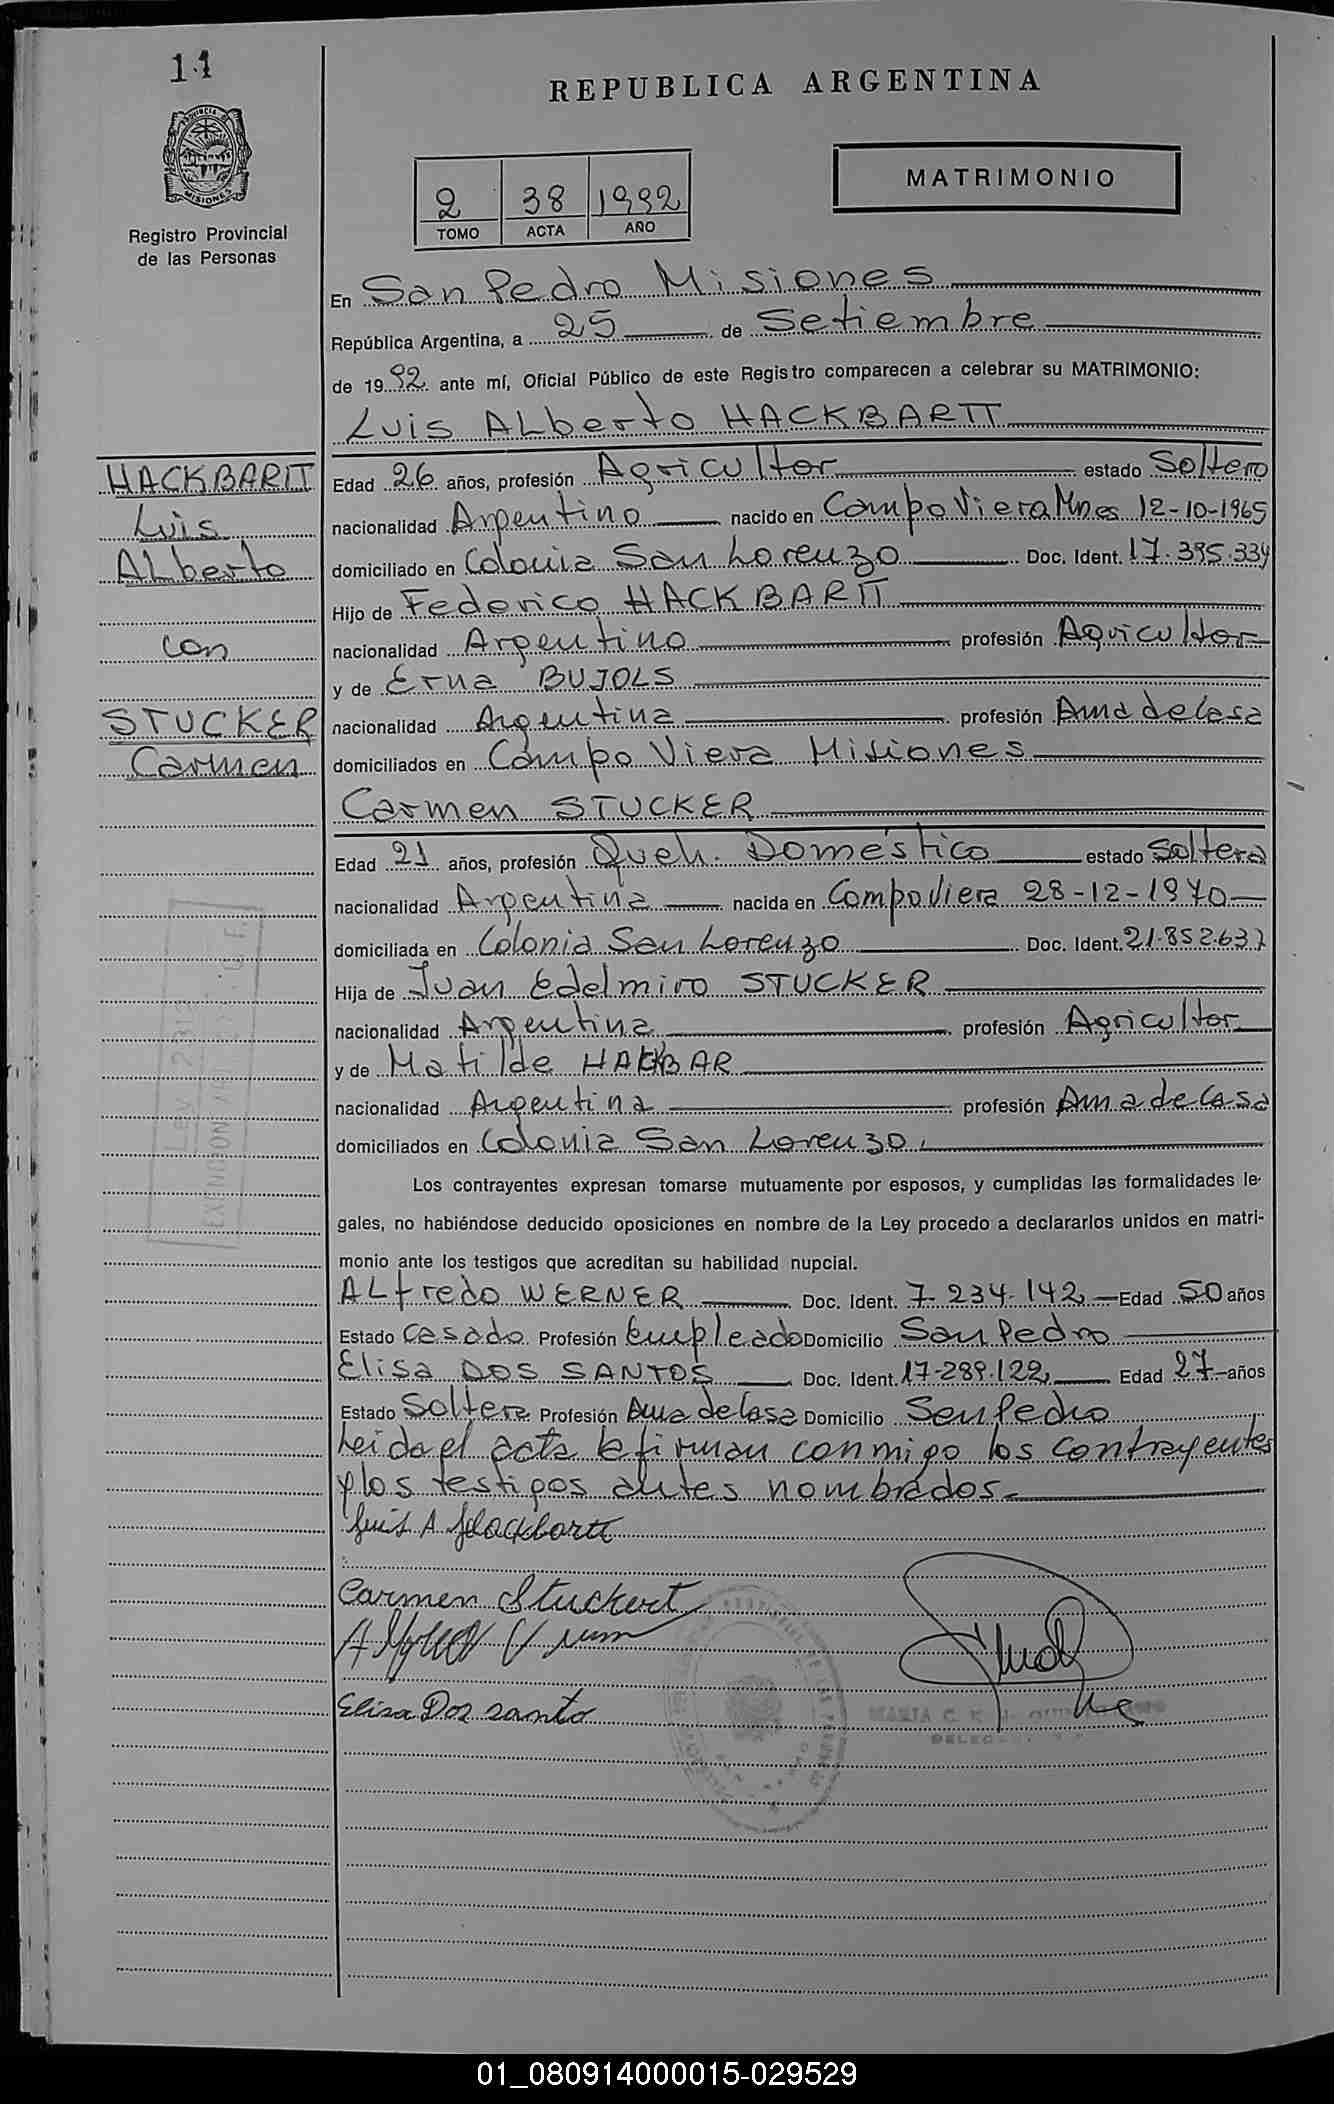 11
REPUBLICA ARGENTINA
PROVINCIA DE
MISIONES
Registro Provincial
de las Personas
2 38 1992
TOMO ACTA AÑO
MATRIMONIO
En San Pedro Misiones
República Argentina, a 25 de Setiembre
de 1992 ante mí, Oficial Público de este Registro comparecen a celebrar su MATRIMONIO:
Luis ALberto HACKBARTT
HACKBARTT
Luis
ALberto
con
STUCKER
Carmen
Edad 26 años, profesión Agricultor estado Soltero
nacionalidad Argentino nacido en Campo Viera Mnes 12-10-1965
domiciliado en Colonia San Lorenzo Doc. Ident. 17.395.334
Hijo de Federico HACKBARTT
nacionalidad Argentino profesión Agricultor
y de Erna BUJOLS
nacionalidad Argentina profesión Ama de Casa
domiciliados en Campo Viera Misiones
Carmen STUCKER
Edad 21 años, profesión Queh. Doméstico estado Soltera
nacionalidad Argentina nacida en Campo Viera 28-12-1970
domiciliada en Colonia San Lorenzo Doc. Ident. 21.852.632
Hija de Juan Edelmiro STUCKER
nacionalidad Argentina profesión Agricultor
y de Matilde HAKBAR
nacionalidad Argentina profesión Ama de Casa
domiciliados en Colonia San Lorenzo.
Los contrayentes expresan tomarse mutuamente por esposos, y cumplidas las formalidades le-
gales, no habiéndose deducido oposiciones en nombre de la Ley procedo a declararlos unidos en matri-
monio ante los testigos que acreditan su habilidad nupcial.
ALfredo WERNER Doc. Ident. 7.234.142 Edad 50 años
Estado Casado Profesión Empleado Domicilio San Pedro
Elisa DOS SANTOS Doc. Ident. 17.289.122 Edad 27 años
Estado Soltera Profesión Ama de Casa Domicilio San Pedro
Leida el acta la firman conmigo los contrayentes
y los testigos antes nombrados.
Luis A Hackbartt
Carmen Stuckert
Elisa Dos santo
MARIA C.
01_080914000015-029529